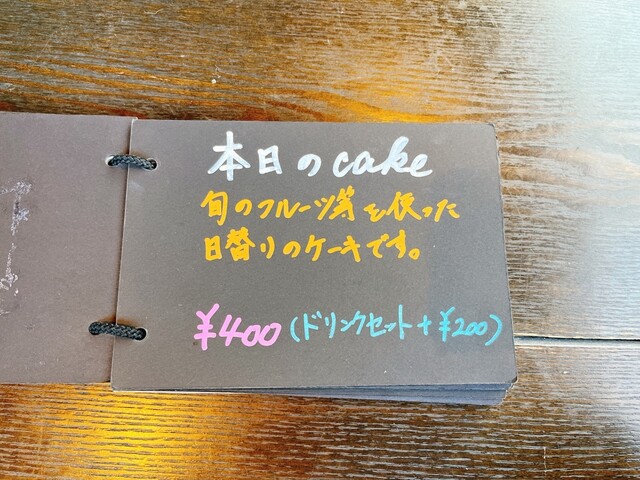 本日のcake
旬のフルーツ等を使った
日替りのケーキです。
¥400(ドリンクセット+¥200)